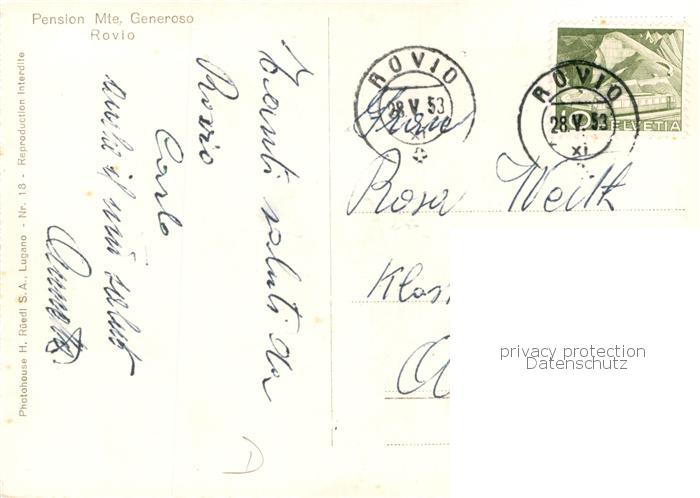 Pension Mte. Generoso
Rovio
Photohouse H. Rüedi S.A., Lugano - Nr. 18 - Reproduction interdite
Tanti saluti da
Rovio
Carlo
anche il mio saluto
ROVIO
28.V.53
XI
ROVIO
28.V.53
XI
10 HELVETIA
Rosa Weith
Klos
privacy protection
Datenschutz